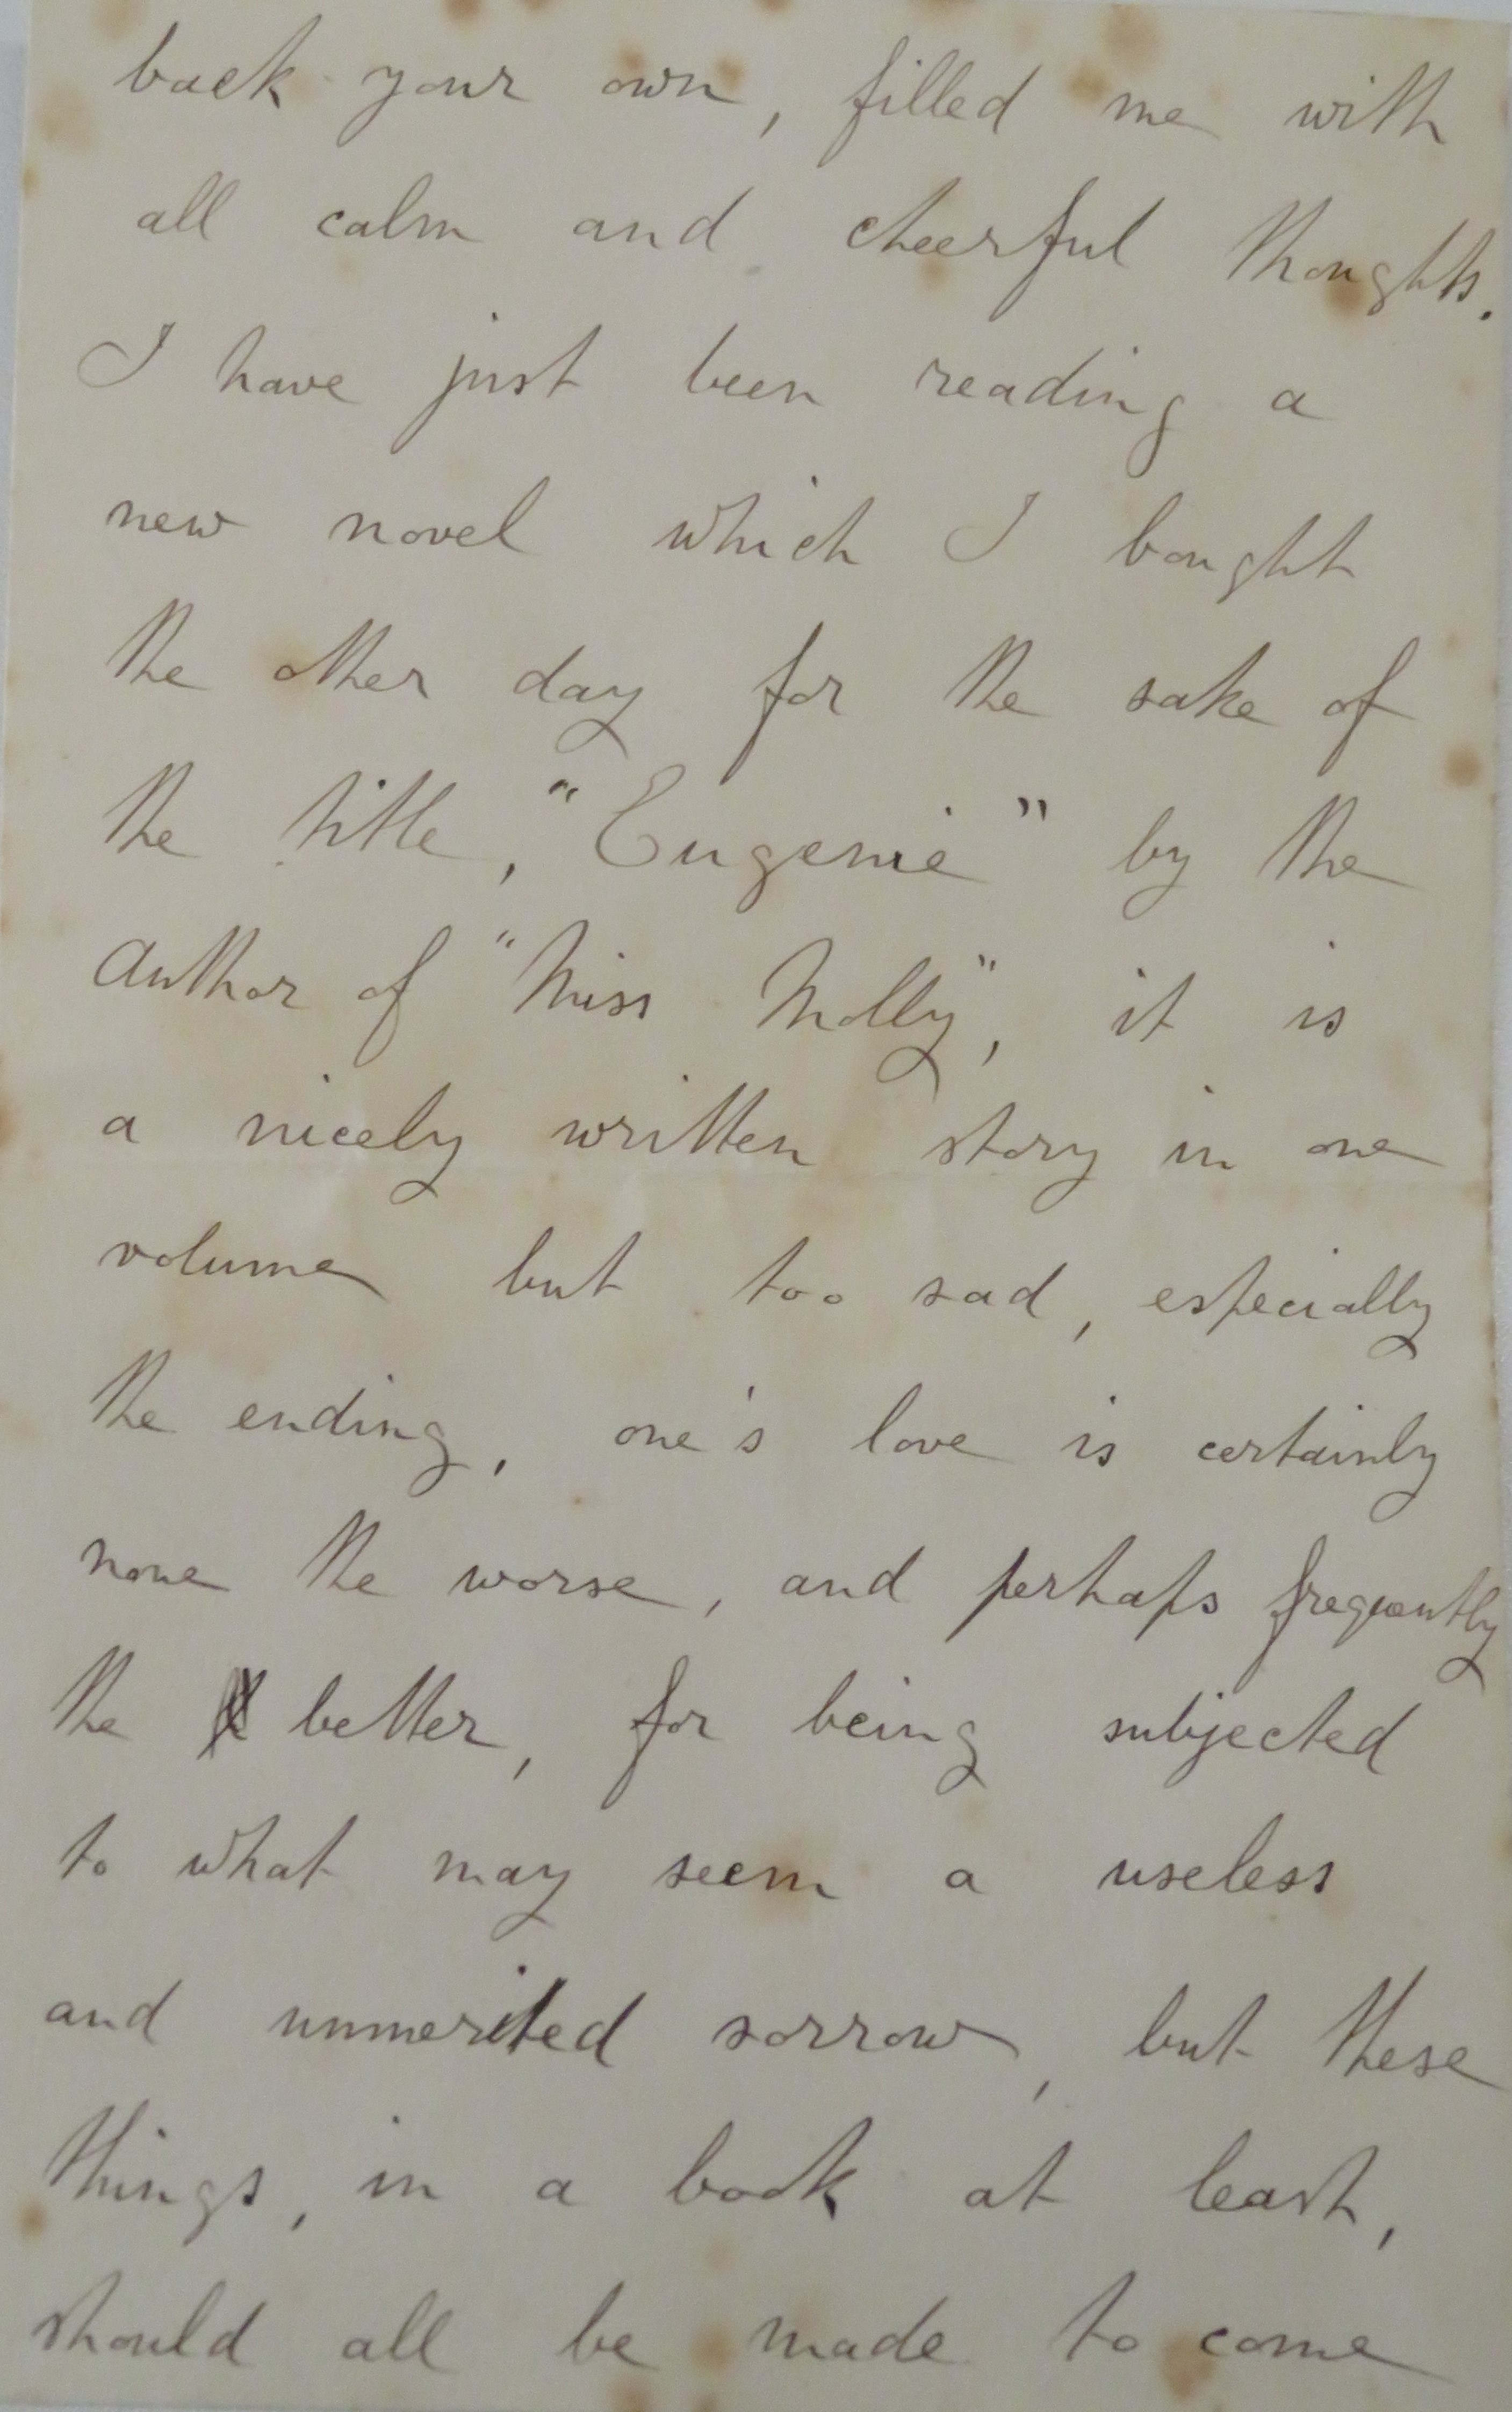 back your own, filled me with
all calm and cheerful thoughts.
I have just been reading a
new novel which I bought
the other day for the sake of
the title, "Eugenie" by the
author of "Miss Molly", it is
a nicely written story in one
volume but too sad, especially
the ending, one's love is certainly
none the worse, and perhaps frequently
the better, for being subjected
to what may seem a useless
and unmerited sorrow, but these
things, in a book at least,
should all be made to come